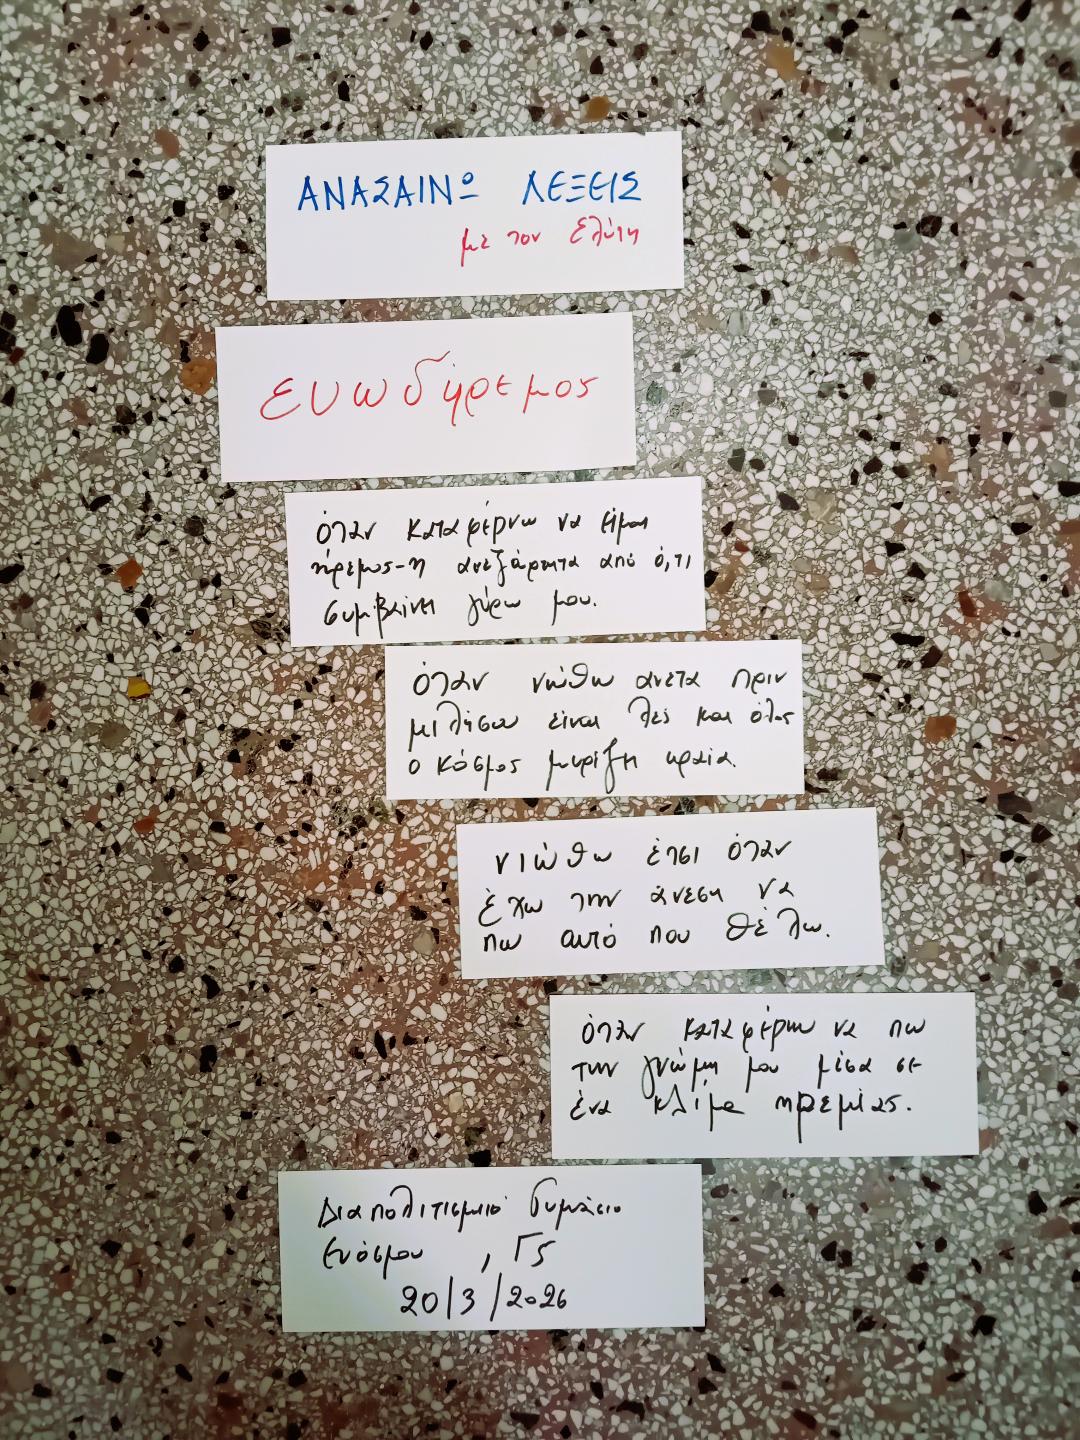 ΑΝΑΣΑΙΝΩ ΛΕΞΕΙΣ
με τον Ελύτη
ευωδήρεμος
όταν καταφέρνω να είμαι
ήρεμος-η ανεξάρτητα από ό,τι
συμβαίνει γύρω μου.
όταν νιώθω άνετα πριν
μιλήσω είναι λες και όλος
ο κόσμος μυρίζει ωραία.
νιώθω έτσι όταν
έχω την άνεση να
πω αυτό που θέλω.
όταν καταφέρνω να πω
την γνώμη μου μέσα σε
ένα κλίμα ηρεμίας.
Διαπολιτισμικό Γυμνάσιο
Ευόσμου , Γ5
20/3/2026